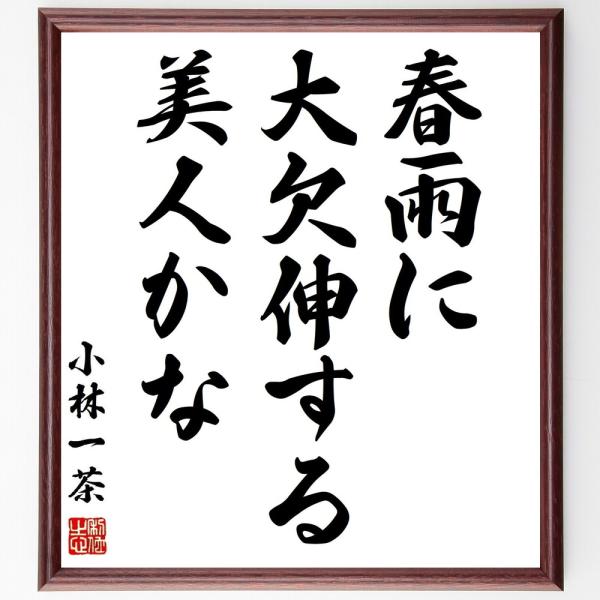 春雨に
大欠伸する
美人かな
小林一茶